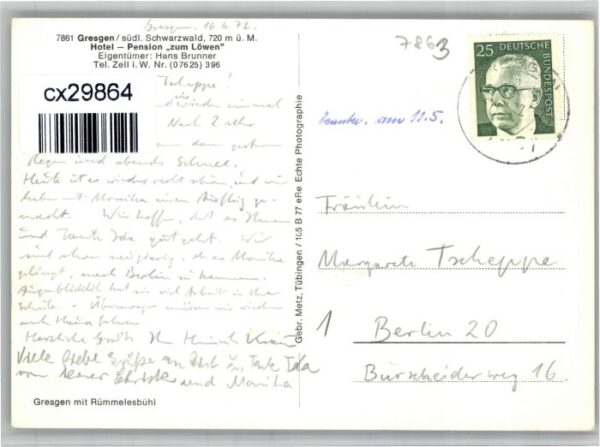 Gresgen, 16.4.72.
7861 Gresgen / südl. Schwarzwald, 720 m ü. M.
Hotel – Pension „zum Löwen"
Eigentümer: Hans Brunner
Tel. Zell i. W. Nr. (07625) 396
cx29864
Tscheppe!
wieder einmal
Nach 2
dem großen
Regen und abends Schnee.
Heute ist es wieder recht schön, und wir
haben mit Monika einen Ausflug ge-
macht. Wir hoffen, daß es Ihnen
und Tante Ida gut geht. Wir
sind schon neugierig, ob es Monika
gelingt, nach Berlin zu kommen.
Augenblicklich hat sie viel Arbeit in der
Schule. Übermorgen müssen wir wieder
nach Hause fahren.
Herzliche Grüße Ihr Heinrich
Viele liebe Grüße an Dich u. Tante Ida
von Deiner und Monika
Gresgen mit Rümmelesbühl
Gebr. Metz, Tübingen / 165 B 77 eRe Echte Photographie
7863
25 DEUTSCHE BUNDESPOST
am 11.5.
Fräulein
Margarete Tscheppe
1 Berlin 20
Burscheider weg 16.